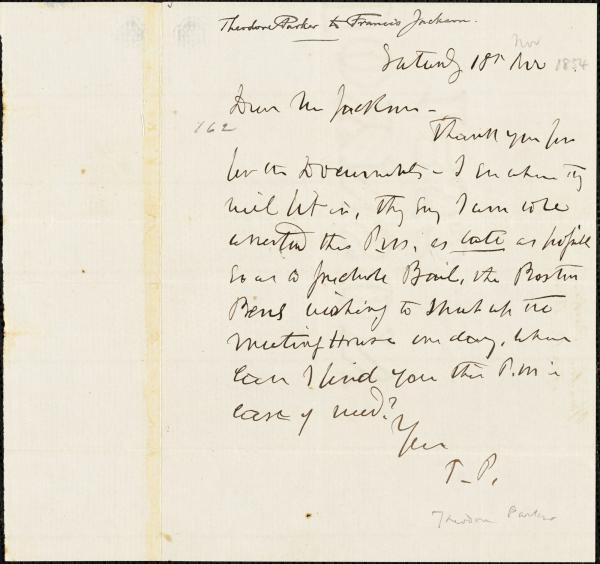 Theodore Parker to Francis Jackson.
Nov
Saturday 18th Nov 1854
Dear Mr Jackson –
162
Thank you
for the Documents – I see where they
will fit in, They say I am to be
arrested this P.M., as late as possible
so as to preclude Bail, the Boston
wishing to shut up the
Meeting House one day, where
can I find you this P.M. in
case of need?
Yours
T. P.
Theodore Parker